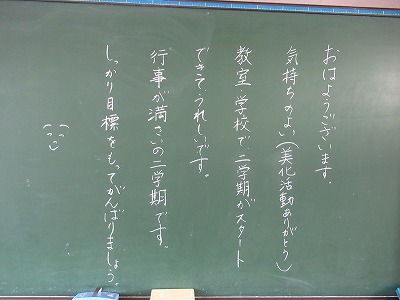 おはようございます。
気持ちのよい(美化活動ありがとう)
教室・学校で、二学期がスタート
できてうれしいです。
行事が満さいの二学期です。
しっかり目標をもってがんばりましょう。